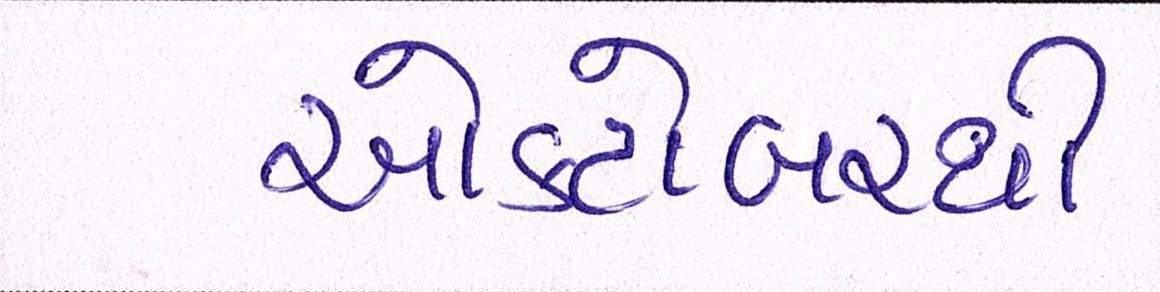 ઓક્ટોબરથી